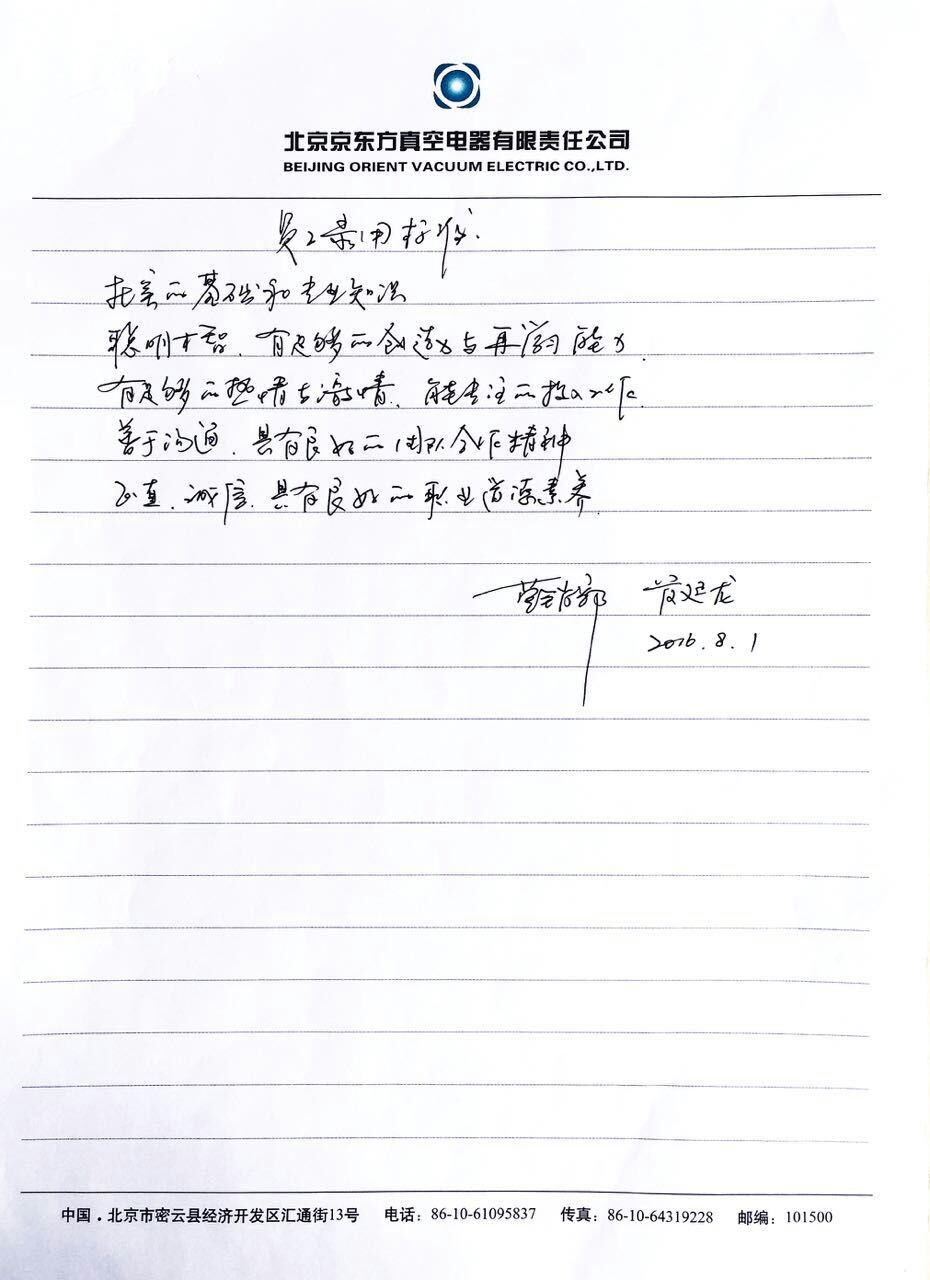 北京京东方真空电器有限责任公司
BEIJING ORIENT VACUUM ELECTRIC CO.,LTD.
员工录用标准.
扎实的基础和专业知识
聪明才智、有足够的创造力与再学习能力.
有足够的热情与激情、能专注的投入工作.
善于沟通、具有良好的团队合作精神
正直、诚信、具有良好的职业道德素养.
龙
2016.8.1
中国.北京市密云县经济开发区汇通街13号 电话: 86-10-61095837 传真: 86-10-64319228 邮编: 101500